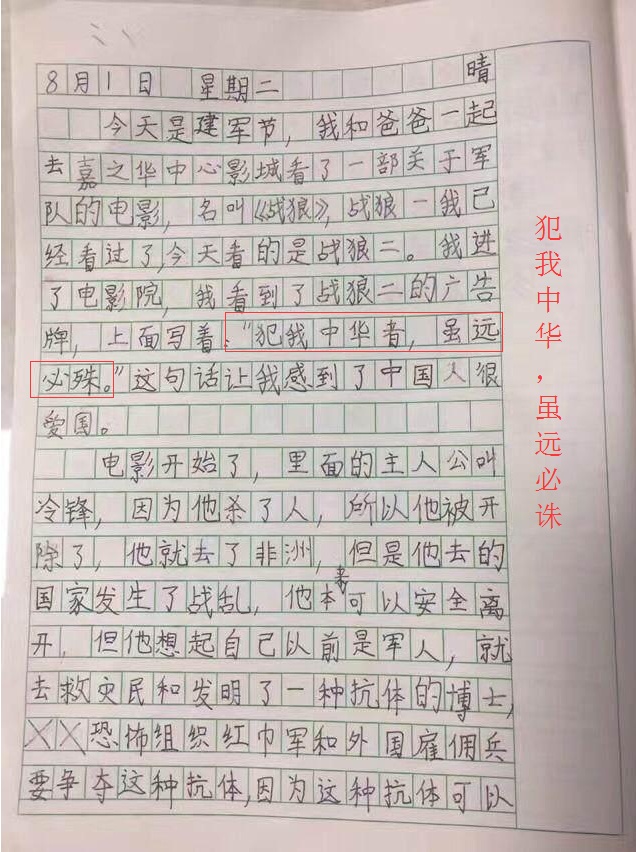 8月1日 星期二 晴
今天是建军节，我和爸爸一起
去嘉之华中心影城看了一部关于军
队的电影，名叫《战狼》，战狼一我已
经看过了，今天看的是战狼二。我进
了电影院，我看到了战狼二的广告
牌，上面写着：“犯我中华者，虽远
必殊。”这句话让我感到了中国人很
爱国。
电影开始了，里面的主人公叫
冷锋，因为他杀了人，所以他被开
除了，他就去了非洲，但是他去的
国家发生了战乱，他本来可以安全离
开，但他想起自己以前是军人，就
去救灾民和发明了一种抗体的博士，
恐怖组织红巾军和外国雇佣兵
要争夺这种抗体，因为这种抗体可以
犯我中华，虽远必诛